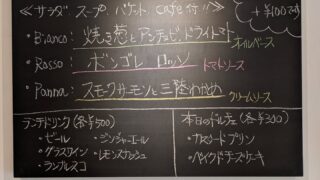 ≪サラダ スープ バケット cafe付!!≫ +¥100で
・Bianco: 焼き葱とアンチョビ・ドライトマト オイルベース
・Rosso: ボンゴレ ロッソ トマトソース
・Panna: スモークサーモンと三陸わかめ クリームソース
ランチドリンク(各¥500)
・ビール ・ジンジャーエール
・グラスワイン ・レモンスカッシュ
・ランブルスコ
本日のドルチェ(各¥300)
・カスタードプリン
・ベイクドチーズケーキ